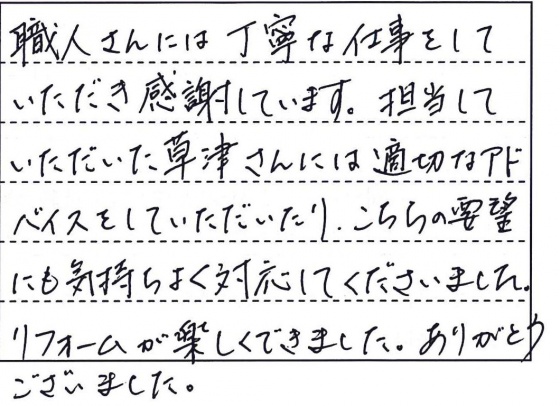 職人さんには丁寧な仕事をして
いただき感謝しています。担当して
いただいた草津さんには適切なアド
バイスをしていただいたり、こちらの要望
にも気持ちよく対応してくださいました。
リフォームが楽しくできました。ありがとう
ございました。